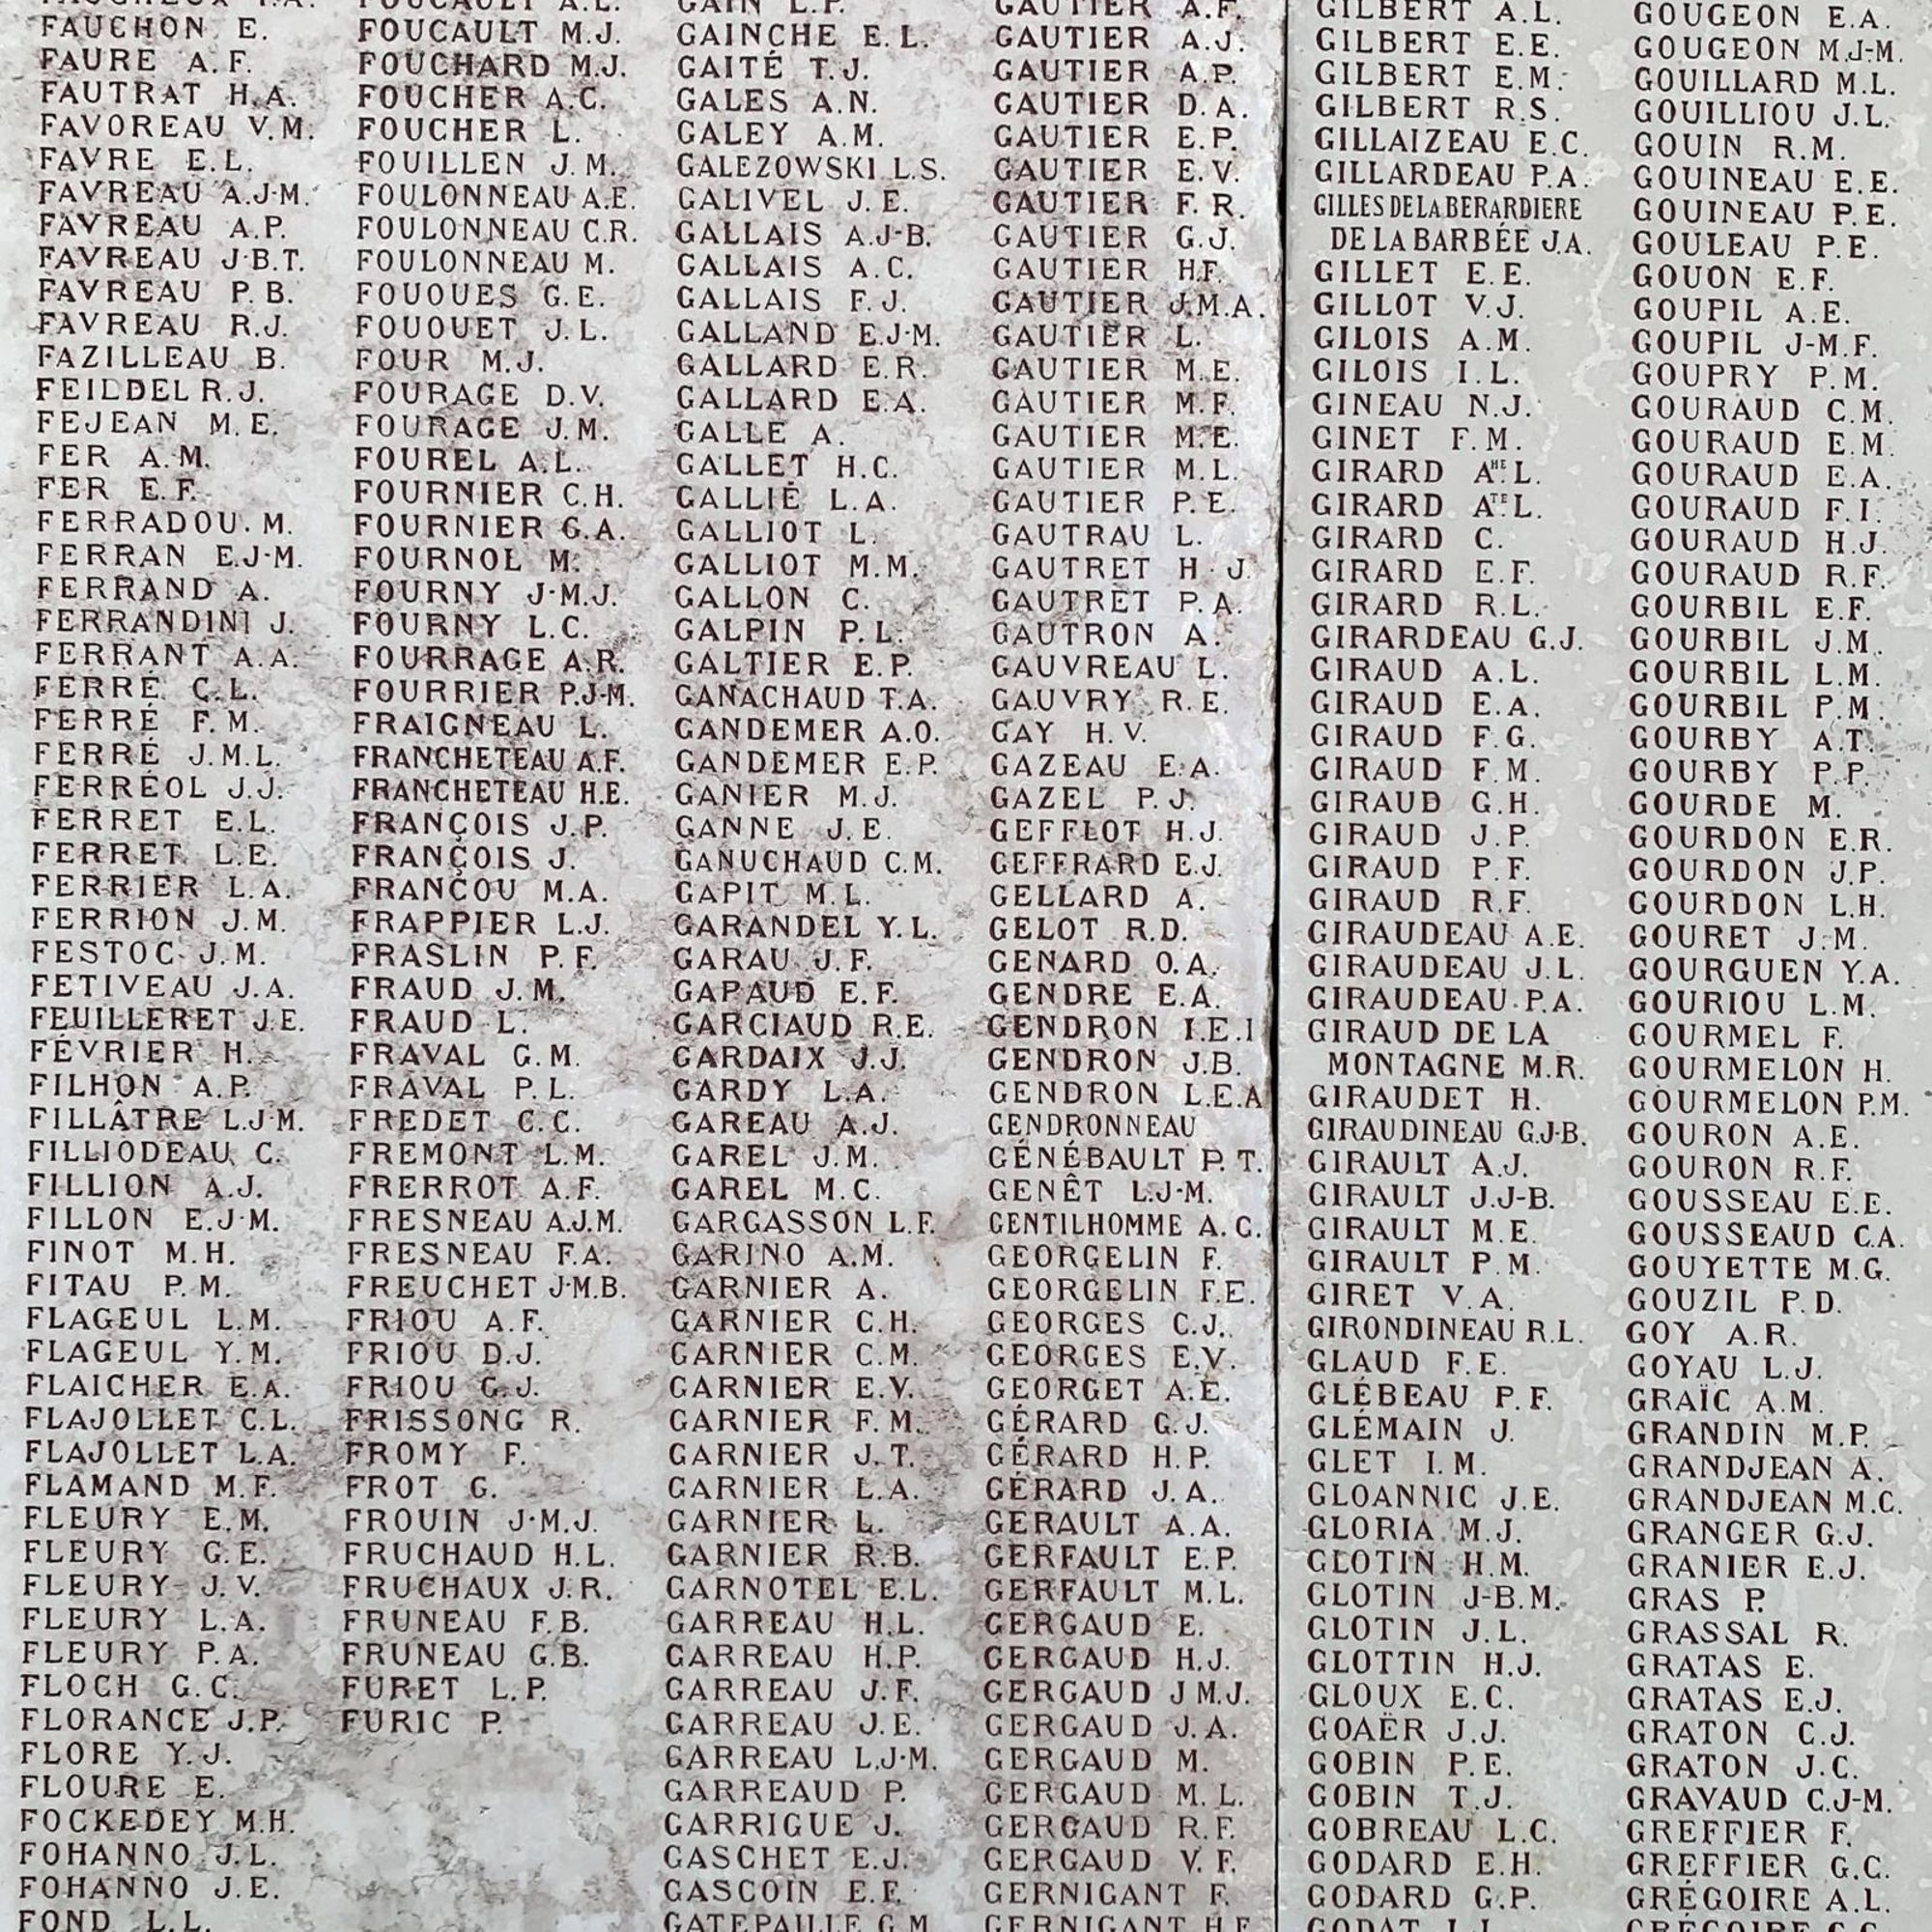 FAUCHON E.
FAURE A.F.
FAUTRAT H.A.
FAVOREAU V.M.
FAVRE E.L.
FAVREAU A.J-M.
FAVREAU A.P.
FAVREAU J-B.T.
FAVREAU P.B.
FAVREAU R.J.
FAZILLEAU B.
FEILDEL R.J.
FEJEAN M.E.
FER A.M.
FER E.F.
FERRADOU. M.
FERRAN E.J-M.
FERRAND A.
FERRANDINI J.
FERRANT A.A.
FERRÉ C.L.
FERRÉ F.M.
FERRÉ J.M.L.
FERRÉOL J.J.
FERRET E.L.
FERRET L.E.
FERRIER L.A.
FERRION J.M.
FESTOC J.M.
FETIVEAU J.A.
FEUILLERET J.E.
FÉVRIER H.
FILHON A.P.
FILLÂTRE L.J-M.
FILLIODEAU C.
FILLION A.J.
FILLON E.J-M.
FINOT M.H.
FITAU P.M.
FLAGEUL L.M.
FLAGEUL Y.M.
FLAICHER E.A.
FLAJOLLET C.L.
FLAJOLLET L.A.
FLAMAND M.F.
FLEURY E.M.
FLEURY G.E.
FLEURY J.V.
FLEURY L.A.
FLEURY P.A.
FLOCH G.C.
FLORANCE J.P.
FLORE Y.J.
FLOURE E.
FOCKEDEY M.H.
FOHANNO J.L.
FOHANNO J.E.
FOND L.L.
FOUCAULT A.L.
FOUCAULT M.J.
FOUCHARD M.J.
FOUCHER A.C.
FOUCHER L.
FOUILLEN J.M.
FOULONNEAU A.E.
FOULONNEAU C.R.
FOULONNEAU M.
FOUQUES G.E.
FOUQUET J.L.
FOUR M.J.
FOURAGE D.V.
FOURAGE J.M.
FOUREL A.L.
FOURNIER C.H.
FOURNIER G.A.
FOURNOL M.
FOURNY J-M.J.
FOURNY L.C.
FOURRAGE A.R.
FOURRIER P.J-M.
FRAIGNEAU L.
FRANCHETEAU A.F.
FRANCHETEAU H.E.
FRANÇOIS J.P.
FRANÇOIS J.
FRANCOU M.A.
FRAPPIER L.J.
FRASLIN P.F.
FRAUD J.M.
FRAUD L.
FRAVAL G.M.
FRAVAL P.L.
FREDET C.C.
FREMONT L.M.
FRERROT A.F.
FRESNEAU A.J.M.
FRESNEAU F.A.
FREUCHET J-M.B.
FRIOU A.F.
FRIOU D.J.
FRIOU G.J.
FRISSONG R.
FROMY F.
FROT G.
FROUIN J-M.J.
FRUCHAUD H.L.
FRUCHAUX J.R.
FRUNEAU F.B.
FRUNEAU G.B.
FURET L.P.
FURIC P.
GAIN L.P.
GAINCHE E.L.
GAITÉ T.J.
GALES A.N.
GALEY A.M.
GALEZOWSKI L.S.
GALIVEL J.E.
GALLAIS A.J-B.
GALLAIS A.C.
GALLAIS F.J.
GALLAND E.J-M.
GALLARD E.R.
GALLARD E.A.
GALLE A.
GALLET H.C.
GALLIÉ L.A.
GALLIOT L.
GALLIOT M.M.
GALLON C.
GALPIN P.L.
GALTIER E.P.
GANACHAUD T.A.
GANDEMER A.O.
GANDEMER E.P.
GANIER M.J.
GANNE J.E.
GANUCHAUD C.M.
GAPIT M.L.
GARANDEL Y.L.
GARAU J.F.
GAPAUD E.F.
GARCIAUD R.E.
GARDAIX J.J.
GARDY L.A.
GAREAU A.J.
GAREL J.M.
GAREL M.C.
GARGASSON L.F.
GARINO A.M.
GARNIER A.
GARNIER C.H.
GARNIER C.M.
GARNIER E.V.
GARNIER F.M.
GARNIER J.T.
GARNIER L.A.
GARNIER L.
GARNIER R.B.
GARNOTEL E.L.
GARREAU H.L.
GARREAU H.P.
GARREAU J.F.
GARREAU J.E.
GARREAU L.J-M.
GARREAUD P.
GARRIGUE J.
GASCHET E.J.
GASCOIN E.F.
GATEPAILLE G.M.
GAUTIER A.F.
GAUTIER A.J.
GAUTIER A.P.
GAUTIER D.A.
GAUTIER E.P.
GAUTIER E.V.
GAUTIER F.R.
GAUTIER G.J.
GAUTIER H.F.
GAUTIER J.M.A.
GAUTIER L.
GAUTIER M.E.
GAUTIER M.F.
GAUTIER M.E.
GAUTIER M.L.
GAUTIER P.E.
GAUTRAU L.
GAUTRET H.J.
GAUTRET P.A.
GAUTRON A.
GAUVREAU L.
GAUVRY R.E.
GAY H.V.
GAZEAU E.A.
GAZEL P.J.
GEFFLOT H.J.
GEFFRARD E.J.
GELLARD A.
GELOT R.D.
GENARD O.A.
GENDRE E.A.
GENDRON I.E.I
GENDRON J.B.
GENDRON L.E.A
GENDRONNEAU
GÉNÉBAULT P.T.
GENÊT L.J-M.
GENTILHOMME A.C.
GEORGELIN F.
GEORGELIN F.E.
GEORGES C.J.
GEORGES E.V.
GEORGET A.E.
GÉRARD G.J.
GÉRARD H.P.
GÉRARD J.A.
GERAULT A.A.
GERFAULT E.P.
GERFAULT M.L.
GERGAUD E.
GERGAUD H.J.
GERGAUD J M.J.
GERGAUD J.A.
GERGAUD M.
GERGAUD M.L.
GERGAUD R.F.
GERGAUD V.F.
GERNIGANT F.
GERNIGANT H.F.
GILBERT A.L.
GILBERT E.E.
GILBERT E.M.
GILBERT R.S.
GILLAIZEAU E.C.
GILLARDEAU P.A.
GILLES DE LA BERARDIERE
DE LA BARBÉE J.A.
GILLET E.E.
GILLOT V.J.
GILOIS A.M.
GILOIS I.L.
GINEAU N.J.
GINET F.M.
GIRARD AHE.L.
GIRARD ATE.L.
GIRARD C.
GIRARD E.F.
GIRARD R.L.
GIRARDEAU G.J.
GIRAUD A.L.
GIRAUD E.A.
GIRAUD F.G.
GIRAUD F.M.
GIRAUD G.H.
GIRAUD J.P.
GIRAUD P.F.
GIRAUD R.F.
GIRAUDEAU A.E.
GIRAUDEAU J.L.
GIRAUDEAU P.A.
GIRAUD DE LA
MONTAGNE M.R.
GIRAUDET H.
GIRAUDINEAU G.J-B.
GIRAULT A.J.
GIRAULT J.J-B.
GIRAULT M.E.
GIRAULT P.M.
GIRET V.A.
GIRONDINEAU R.L.
GLAUD F.E.
GLÉBEAU P.F.
GLÉMAIN J.
GLET I.M.
GLOANNIC J.E.
GLORIA M.J.
GLOTIN H.M.
GLOTIN J-B.M.
GLOTIN J.L.
GLOTTIN H.J.
GLOUX E.C.
GOAËR J.J.
GOBIN P.E.
GOBIN T.J.
GOBREAU L.C.
GODARD E.H.
GODARD G.P.
GODAT
GOUGEON E.A.
GOUGEON M.J-M.
GOUILLARD M.L.
GOUILLIOU J.L.
GOUIN R.M.
GOUINEAU E.E.
GOUINEAU P.E.
GOULEAU P.E.
GOUON E.F.
GOUPIL A.E.
GOUPIL J-M.F.
GOUPRY P.M.
GOURAUD C.M.
GOURAUD E.M.
GOURAUD E.A.
GOURAUD F.I.
GOURAUD H.J.
GOURAUD R.F.
GOURBIL E.F.
GOURBIL J.M.
GOURBIL L.M.
GOURBIL P.M.
GOURBY A.T.
GOURBY P.P.
GOURDE M.
GOURDON E.R.
GOURDON J.P.
GOURDON L.H.
GOURET J.M.
GOURGUEN Y.A.
GOURIOU L.M.
GOURMEL F.
GOURMELON H.
GOURMELON P.M.
GOURON A.E.
GOURON R.F.
GOUSSEAU E.E.
GOUSSEAUD C.A.
GOUYETTE M.G.
GOUZIL P.D.
GOY A.R.
GOYAU L.J.
GRAÏC A.M.
GRANDIN M.P.
GRANDJEAN A.
GRANDJEAN M.C.
GRANGER G.J.
GRANIER E.J.
GRAS P.
GRASSAL R.
GRATAS E.
GRATAS E.J.
GRATON C.J.
GRATON J.C.
GRAVAUD C.J-M.
GREFFIER F.
GREFFIER G.C.
GRÉGOIRE A.L.
GRÉGOIRE